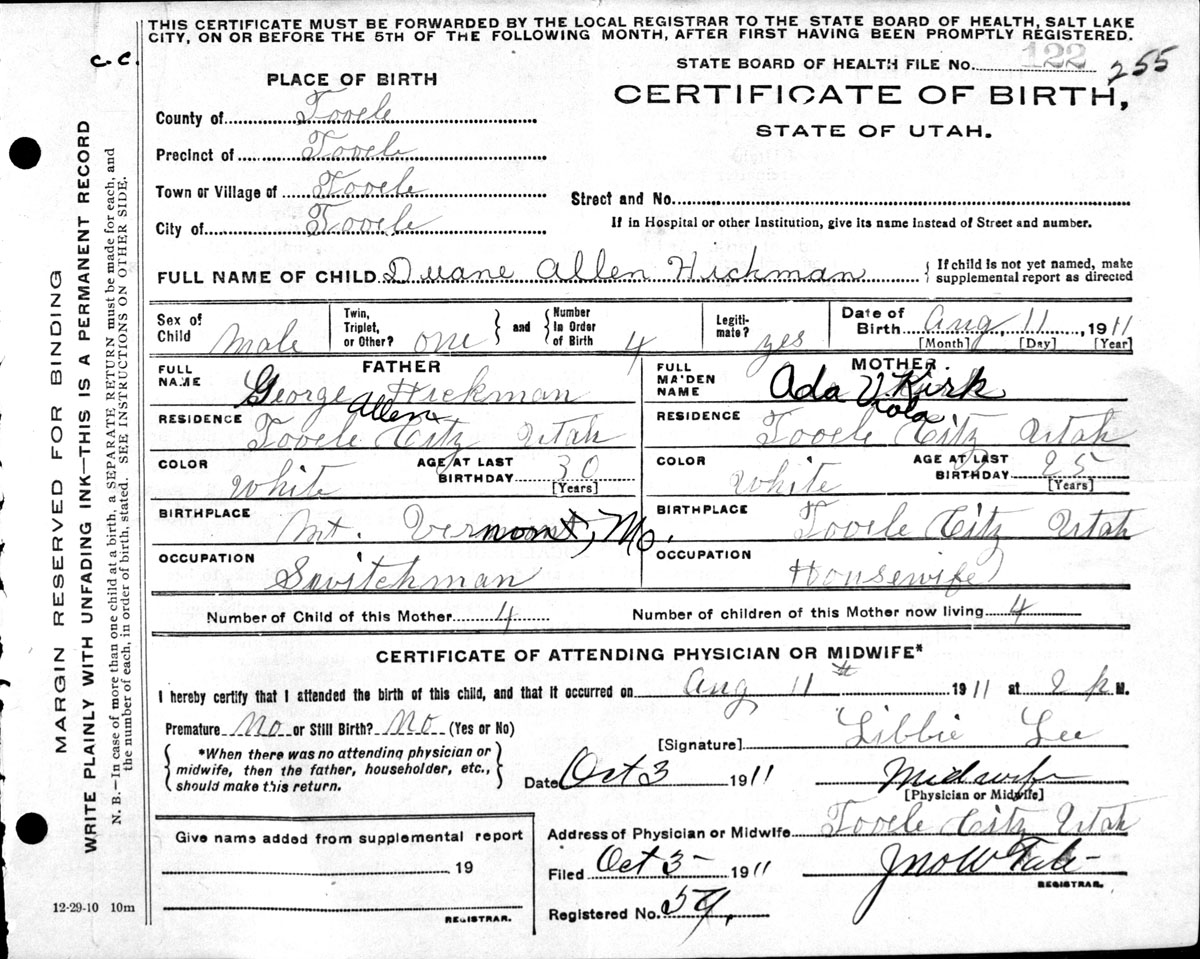 THIS CERTIFICATE MUST BE FORWARDED BY THE LOCAL REGISTRAR TO THE STATE BOARD OF HEALTH, SALT LAKE
CITY, ON OR BEFORE THE 5TH OF THE FOLLOWING MONTH, AFTER FIRST HAVING BEEN PROMPTLY REGISTERED.
c.c.
STATE BOARD OF HEALTH FILE No. 122 255
PLACE OF BIRTH
CERTIFICATE OF BIRTH,
STATE OF UTAH.
County of Tooele
Precinct of Tooele
Town or Village of Tooele
Street and No.
City of Tooele
If in Hospital or other Institution, give its name instead of Street and number.
FULL NAME OF CHILD Duane Allen Hickman
If child is not yet named, make
supplemental report as directed
Sex of Child Male
Twin, Triplet, or Other? one
and Number in Order of Birth 4
Legiti-mate? yes
Date of Birth Aug, 11, 1911
[Month] [Day] [Year]
FATHER
FULL NAME George Hickman
Allen
MOTHER.
FULL MAIDEN NAME Ada V. Kirk
iola
RESIDENCE Tooele City Utah
RESIDENCE Tooele City Utah
COLOR White
AGE AT LAST BIRTHDAY 30
[Years]
COLOR White
AGE AT LAST BIRTHDAY 25
[Years]
BIRTHPLACE Mt. Vernont, Mo.
BIRTHPLACE Tooele City Utah
OCCUPATION Switchman
OCCUPATION Housewife
Number of Child of this Mother 4
Number of children of this Mother now living 4
CERTIFICATE OF ATTENDING PHYSICIAN OR MIDWIFE*
I hereby certify that I attended the birth of this child, and that it occurred on Aug 11th 1911 at 2 p M.
Premature No or Still Birth? No (Yes or No)
[Signature] Libbie Lee
*When there was no attending physician or
midwife, then the father, householder, etc.,
should make this return.
Date Oct 3 1911
Midwife
[Physician or Midwife]
Give name added from supplemental report
19
REGISTRAR.
Address of Physician or Midwife Tooele City Utah
Filed Oct 3- 1911
Jno W Tate
REGISTRAR.
Registered No. 59,
12-29-10 10m
MARGIN RESERVED FOR BINDING
WRITE PLAINLY WITH UNFADING INK—THIS IS A PERMANENT RECORD
N. B.—In case of more than one child at a birth, a SEPARATE RETURN must be made for each, and
the number of each, in order of birth, stated. SEE INSTRUCTIONS ON OTHER SIDE.